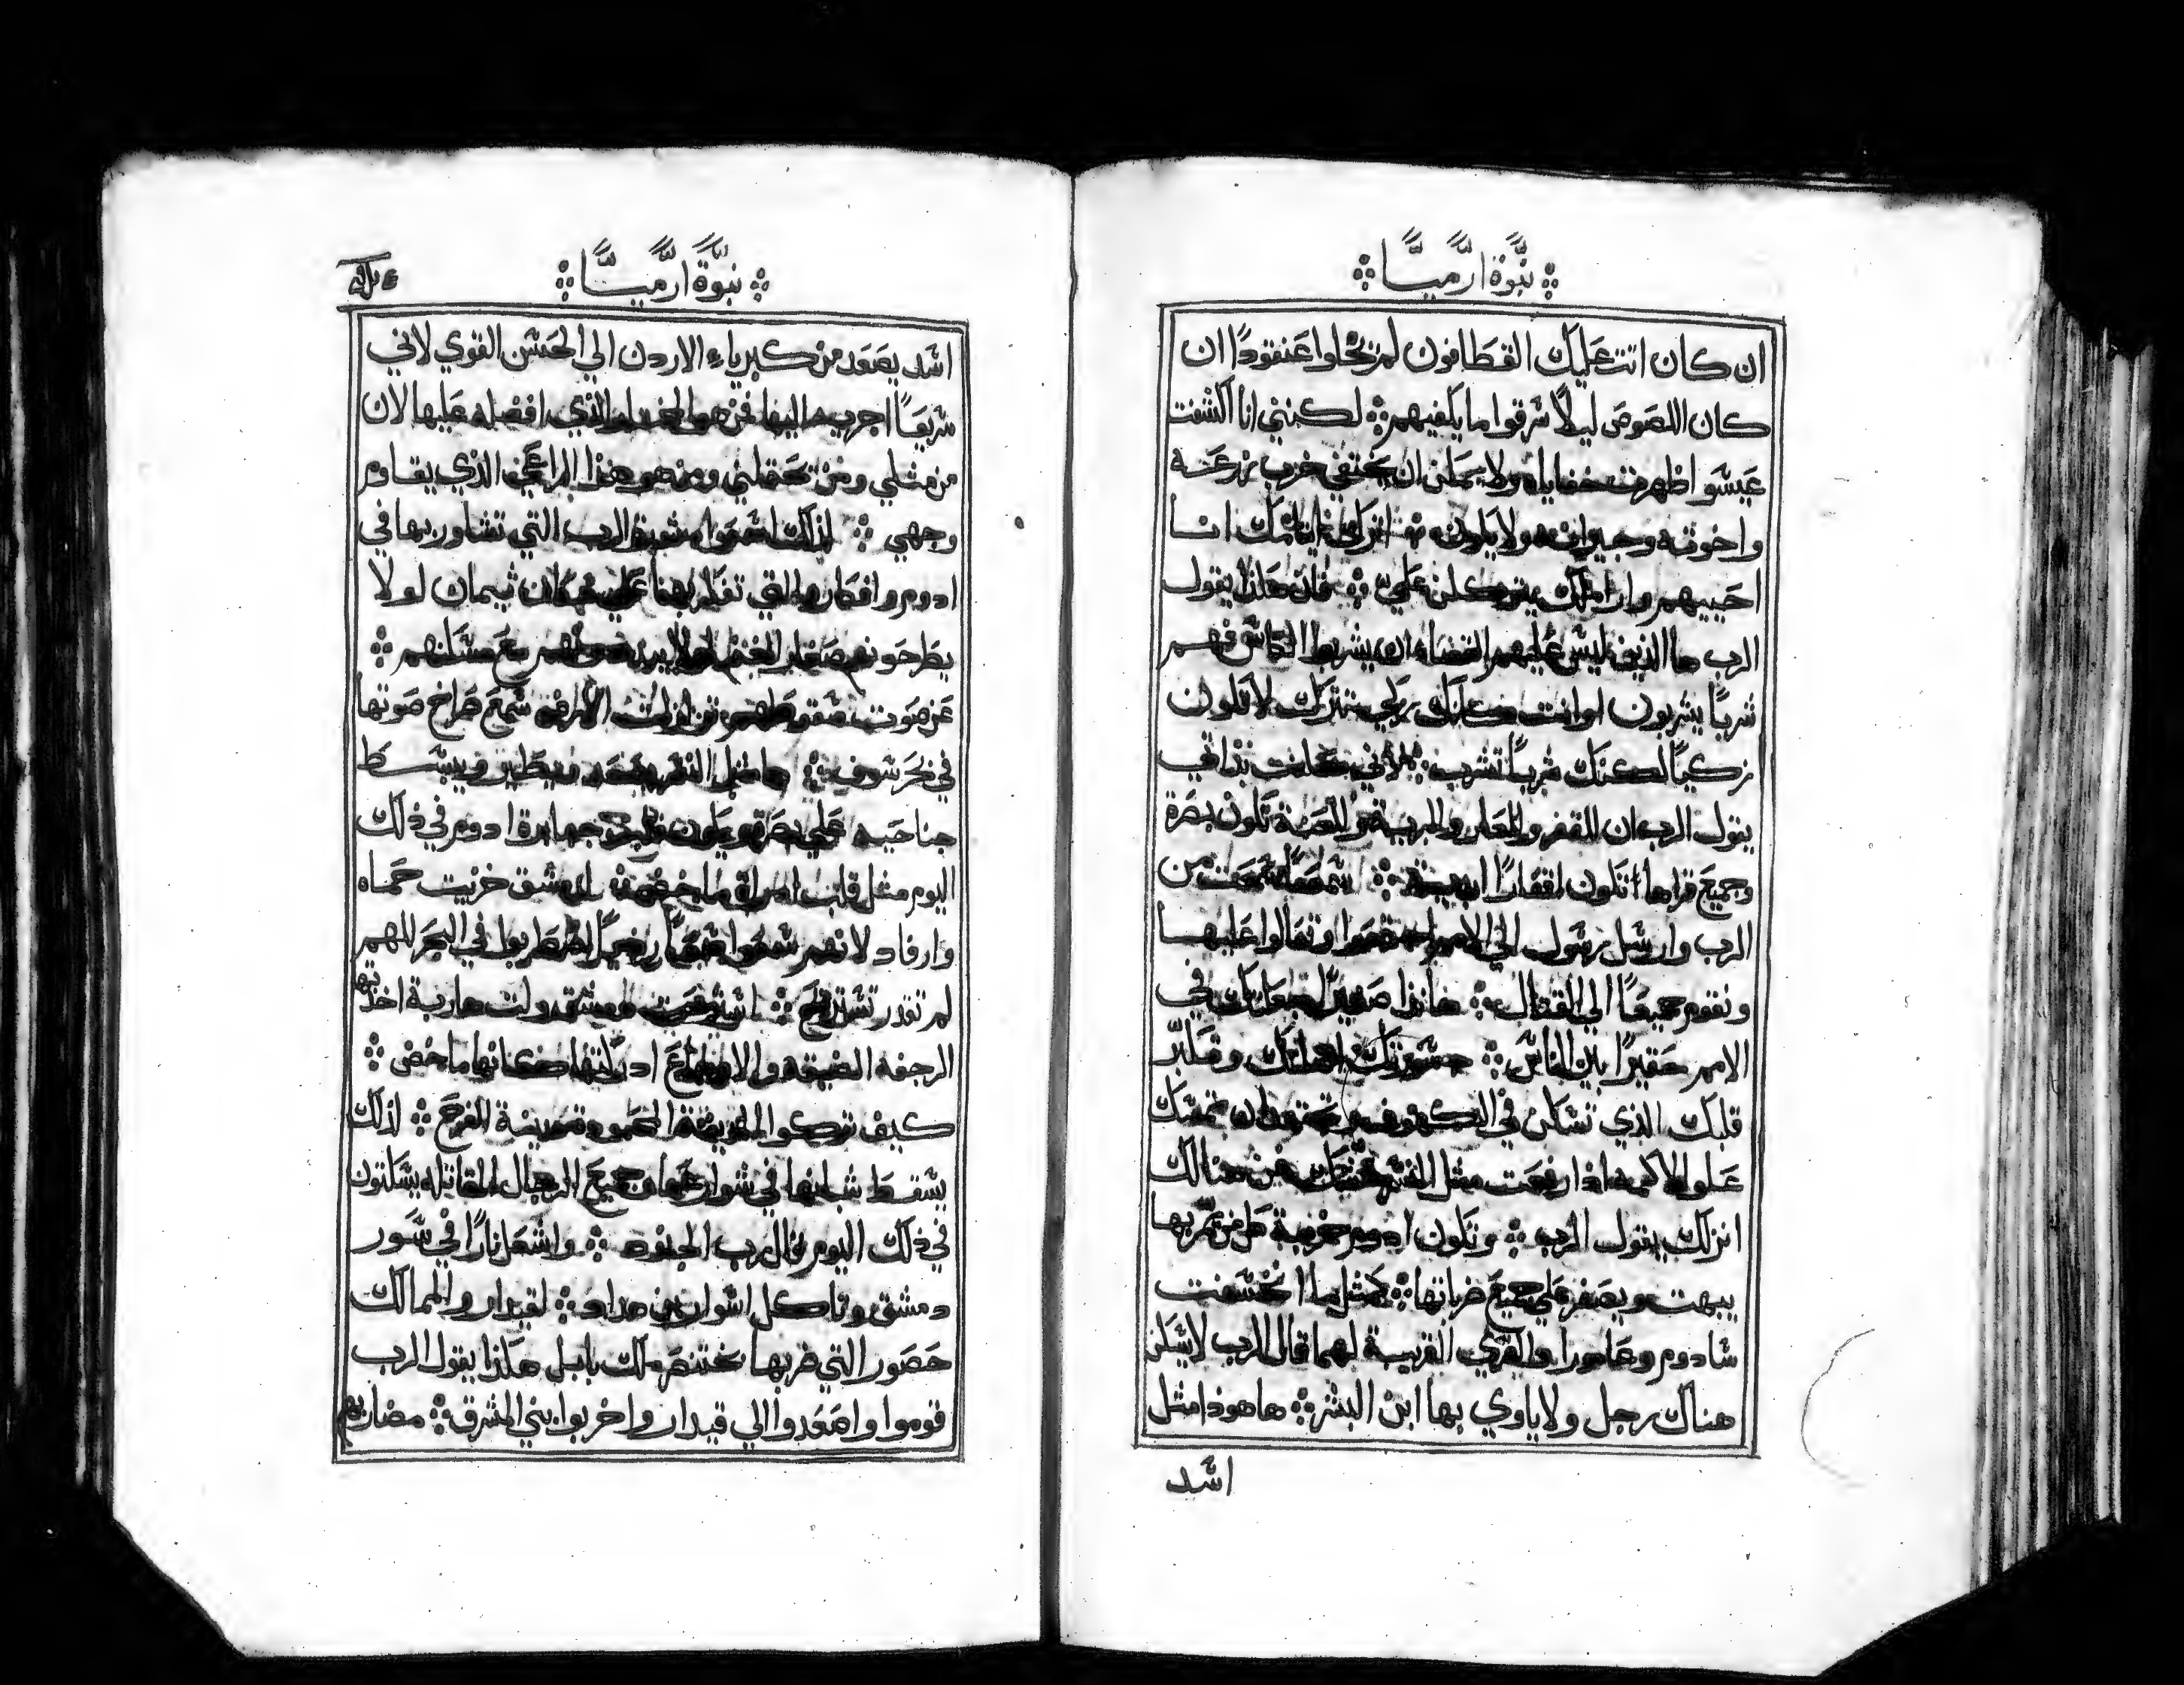 نبوة ارميا
ان كان اتت عليك القطافون لم يخلوا عنقودًا ان
كان اللصوص ليلًا سرقوا ما يكفيهم لكنني انا اكشفت
عيسو اظهرت خفاياه ولا يمكن ان يختفي خرب زرعه
واخوته وجيرانه ولا يكون اترك ايتامك انا
احييهم واراملك يتوكلن علي فان هكذا يقول
الرب ها الذين ليس عليهم القضاء ان يشربوا الكاس فهم
شربًا يشربون اوانت كانك بري تترك لا تكون
زكيًا لكنك شربًا تشرب لاني حلفت بذاتي
يقول الرب ان للقفر وللعار وللبرية وللعنة تكون بصرة
وجميع قراها تكون اقفارًا ابدية سمعًا سمعت من
الرب وارسل رسول الي الامم اجتمعوا وتعالوا عليها
ونقوم جميعًا الي القتال هانذا صغيرًا جعلتك في
الامم حقيرًا بين الناس وتكبر
قلبك الذي تسكن في الكهوف تمسك
علو الاكمه اذا رفعت مثل النسر عشك من هنالك
انزلك يقول الرب وتكون ادوم خربة كل من يمر بها
يبهت ويصفر علي جميع ضرباتها كمثل ما انخسفت
سادوم وعامورا والقري القريبة لهما قال الرب لا يسكن
هناك رجل ولا ياوي بها ابن البشر ها هوذا مثل
اسد
نبوة ارميا
اسد يصعد من كبرياء الاردن الي الحسن القوي لاني
سريعًا اجريه اليها فمن هو المختار الذي افضله عليها لان
من مثلي ومن يحتملني ومن هو هذا الراعي الذي يقاوم
وجهي لذلك اسمعوا مشورة الرب التي تشاور بها في
ادوم وافكاره التي تفكر بها علي سكان ثيمان لو لا
يطرحونهم صغار الغنم لو لا يبددون معهم مسكنهم
عن صوت سقوطهم تزلزلت الارض سمع صراخ صوتها
في بحر سوف ها مثل النسر يصعد ويطير ويبسط
جناحيه علي بصرة ويكون قلب جبابرة ادوم في ذلك
اليوم مثل قلب امراة ماخضة لدمشق خزيت حماه
وارفاد لانهم سمعوا سمعًا رديًا اضطربوا في البحر للهم
لم تقدر تستريح استرخت دمشق ولت هاربة اخذتها
الرجفه الضيقه والاوجاع ادركتها كانها ماخض
كيف تركوا المدينة المحمودة مدينة الفرح لذلك
يسقط شبانها في شوارعها وجميع الرجال المقاتله يسكتون
في ذلك اليوم قال رب الجنود واشعل نارًا في سور
دمشق وتاكل اسوار بن هداد لقيدار والممالك
حصور التي ضربها بختنصر ملك بابل هكذا يقول الرب
قوموا واصعدوا الي قيدار واخربوا بني المشرق مضاربهم